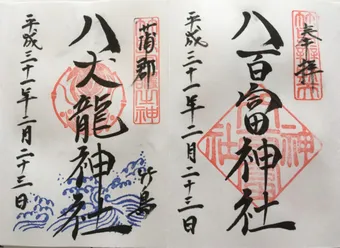 奉拝
八百富神社
平成三十一年二月二十三日
蒲郡
八大龍神社
竹島
平成三十一年二月二十三日